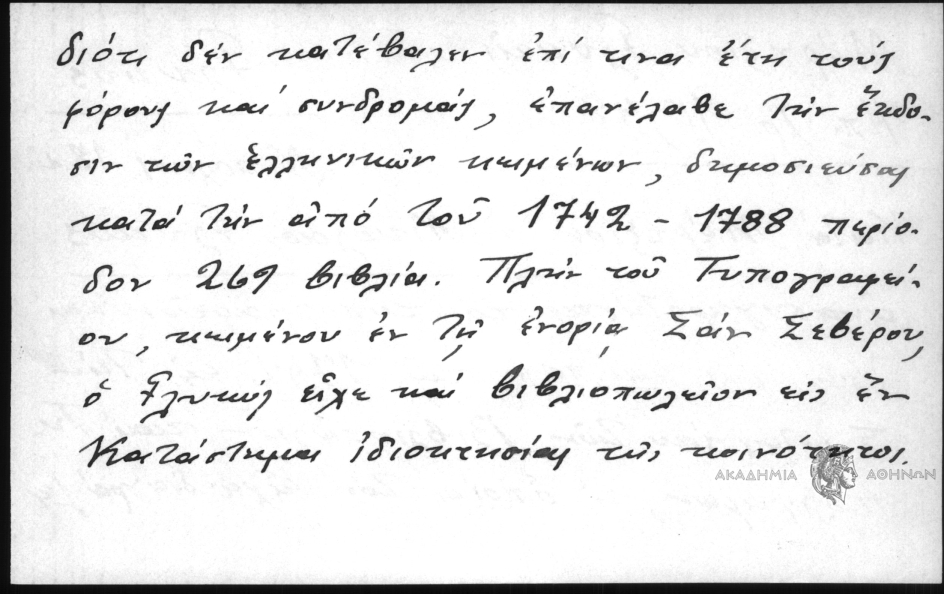 διότι δέν κατέβαλεν ἐπί τινα ἔτη τούς
φόρους καί συνδρομάς, ἐπανέλαβε τήν ἔκδο-
σιν τῶν ἑλληνικῶν κειμένων, δημοσιεύσας
κατά τήν ἀπό τοῦ 1742 - 1788 περίο-
δον 269 βιβλία. Πλήν τοῦ Τυπογραφεί-
ου, κειμένου ἐν τῇ ἐνορίᾳ Σάν Σεβέρου,
ὁ Γλυκύς εἶχε καί βιβλιοπωλεῖον εἰς ἕν
Κατάστημα ἰδιοκτησίας τῆς κοινότητος.
ΑΚΑΔΗΜΙΑ ΑΘΗΝΩΝ